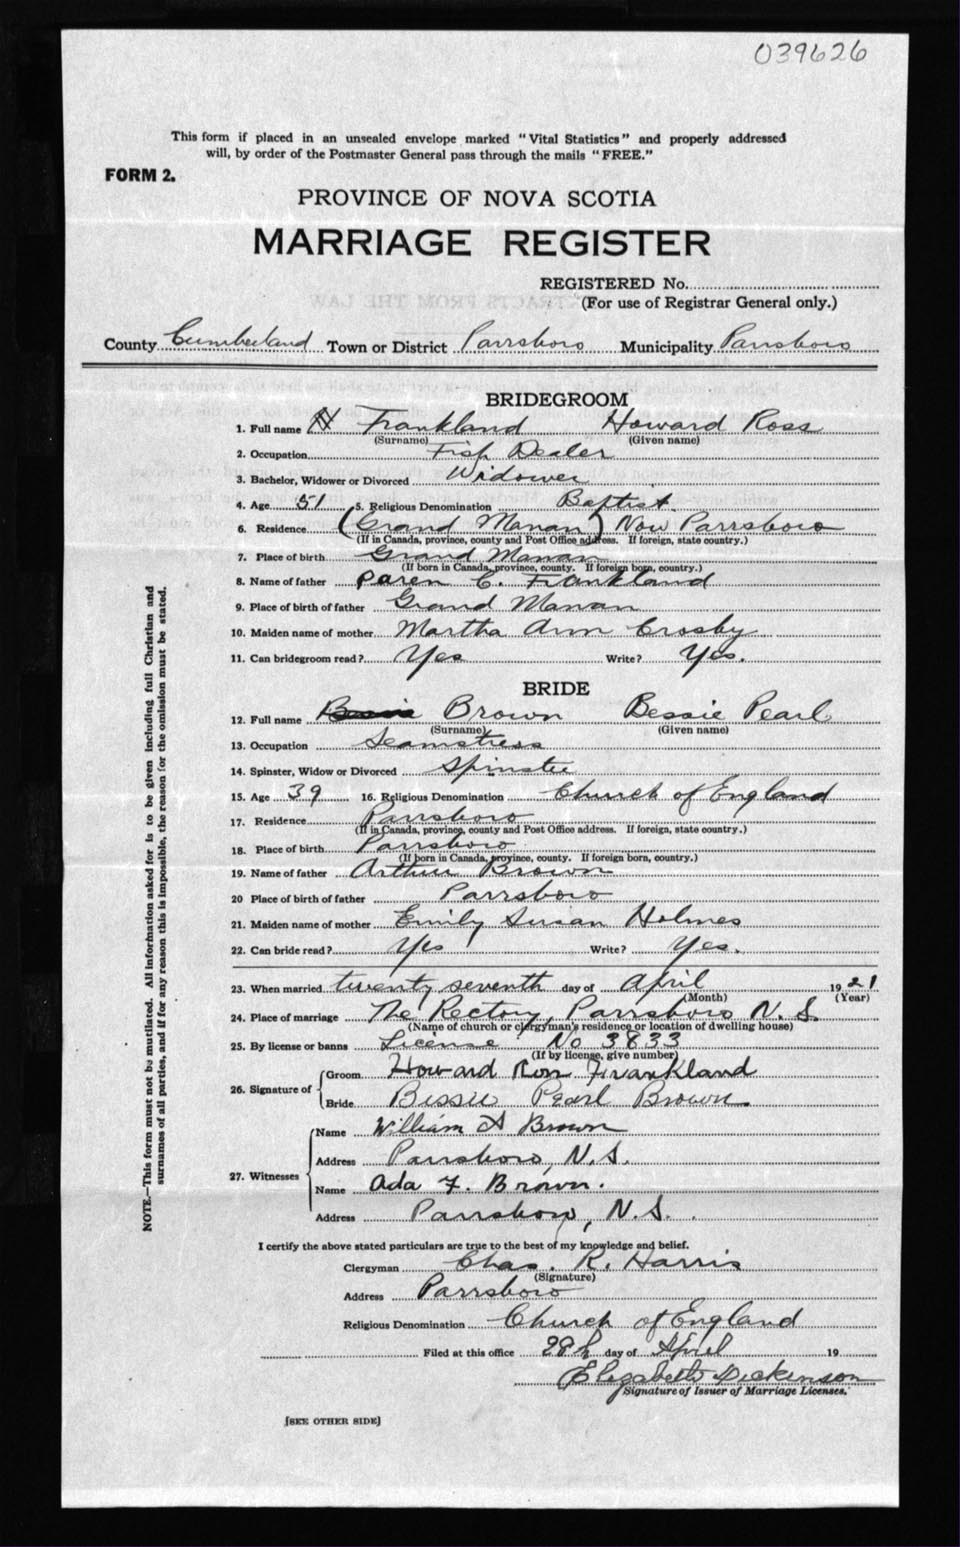 039626
This form if placed in an unsealed envelope marked "Vital Statistics" and properly addressed
will, by order of the Postmaster General pass through the mails "FREE."
FORM 2.
PROVINCE OF NOVA SCOTIA
MARRIAGE REGISTER
REGISTERED No.
(For use of Registrar General only.)
County Cumberland Town or District Parrsboro Municipality Parrsboro
BRIDEGROOM
1. Full name H Frankland Howard Ross
(Surname) (Given name)
2. Occupation Fish Dealer
3. Bachelor, Widower or Divorced Widower
4. Age 51 5. Religious Denomination Baptist.
6. Residence (Grand Manan) Now Parrsboro
(If in Canada, province, county and Post Office address. If foreign, state country.)
7. Place of birth Grand Manan
(If born in Canada, province, county. If foreign born, country.)
8. Name of father Paren C. Frankland
9. Place of birth of father Grand Manan
10. Maiden name of mother Martha Ann Crosby
11. Can bridegroom read? Yes Write? Yes.
BRIDE
12. Full name Bessie Brown Bessie Pearl
(Surname) (Given name)
13. Occupation Seamstress
14. Spinster, Widow or Divorced Spinster
15. Age 39 16. Religious Denomination Church of England
17. Residence Parrsboro
(If in Canada, province, county and Post Office address. If foreign, state country.)
18. Place of birth Parrsboro
(If born in Canada, province, county. If foreign born, country.)
19. Name of father Arthur Brown
20 Place of birth of father Parrsboro
21. Maiden name of mother Emily Susan Holmes
22. Can bride read? Yes Write? Yes.
23. When married twenty seventh day of April 1921
(Month) (Year)
24. Place of marriage The Rectory, Parrsboro N.S.
(Name of church or clergyman's residence or location of dwelling house)
25. By license or banns License No 3833
(If by license, give number)
26. Signature of
Groom Howard Ross Frankland
Bride Bessie Pearl Brown
27. Witnesses
Name William A Brown
Address Parrsboro, N.S.
Name Ada F. Brown.
Address Parrsboro, N.S.
I certify the above stated particulars are true to the best of my knowledge and belief.
Clergyman Chas. R. Harris
(Signature)
Address Parrsboro
Religious Denomination Church of England
Filed at this office 28th day of April 19
Elizabeth Dickenson
Signature of Issuer of Marriage Licenses.
[SEE OTHER SIDE]
NOTE.—This form must not be mutilated. All information asked for is to be given including full Christian and
surnames of all parties, and if for any reason this is impossible, the reason for the omission must be stated.